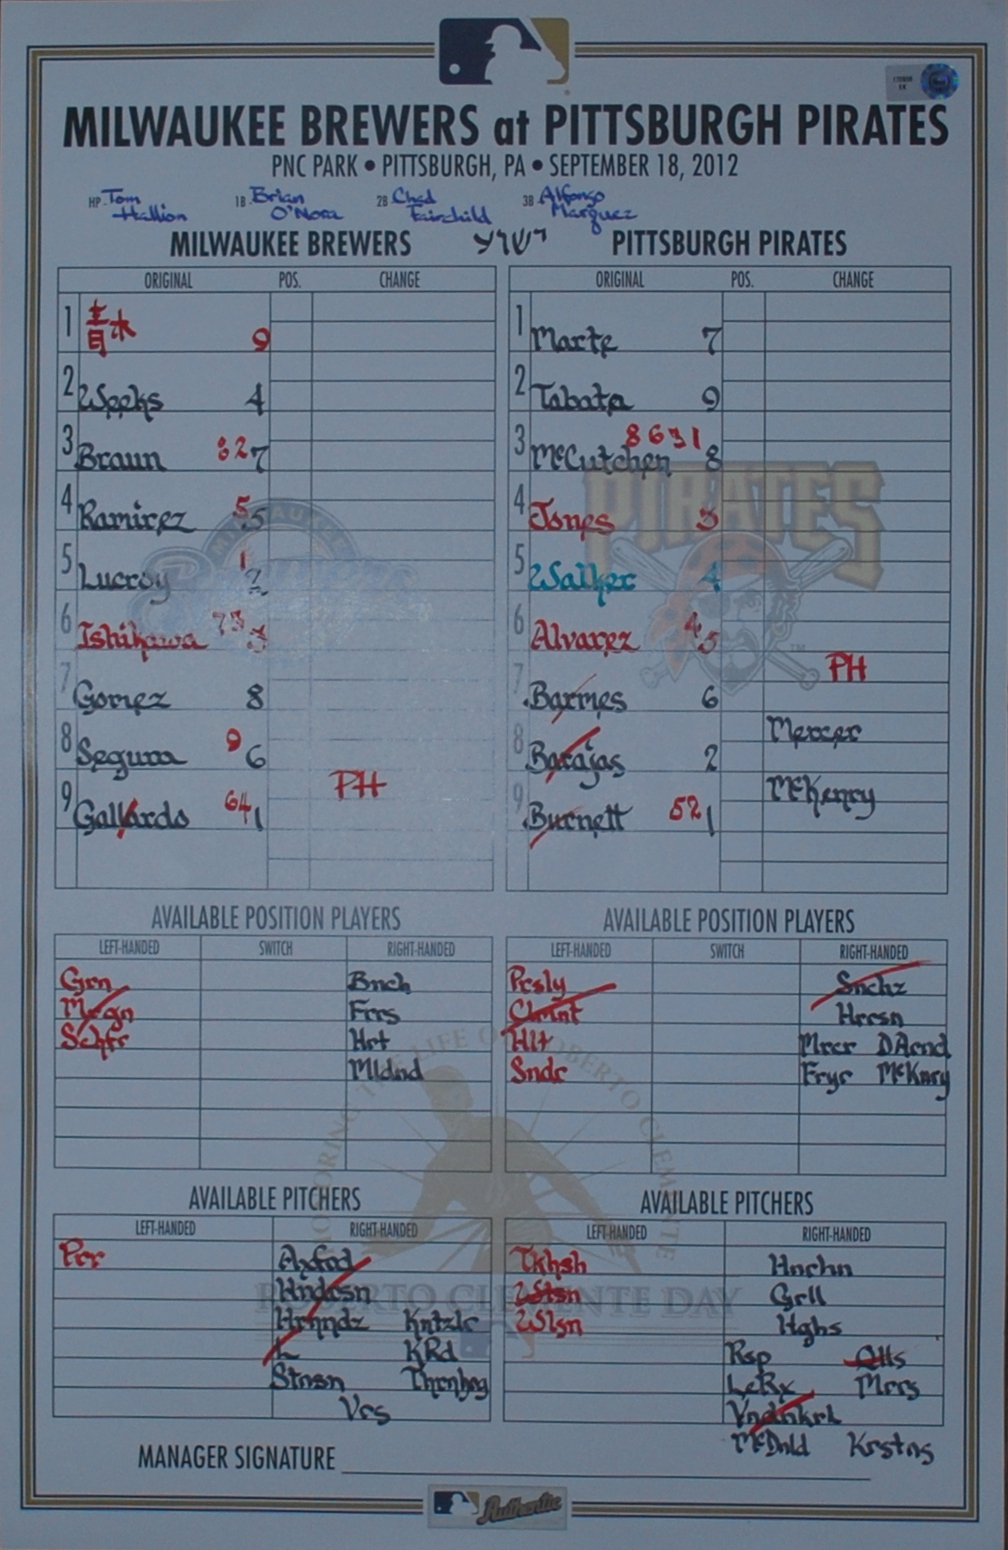 MILWAUKEE BREWERS at PITTSBURGH PIRATES
PNC PARK • PITTSBURGH, PA • SEPTEMBER 18, 2012
HP- Tom Hallion 1B- Brian O'Nora 2B- Chad Fairchild 3B- Alfonso Marquez
MILWAUKEE BREWERS ישוע PITTSBURGH PIRATES
ORIGINAL POS. CHANGE
1 青木 9
2 Weeks 4
3 Braun 7
4 Ramirez 5 5
5 Lucroy 1 2
6 Ishikawa 3
7 Gomez 8
8 Segura 9 6
PH
9 Gallardo 64 1
ORIGINAL POS. CHANGE
1 Marte 7
2 Tabata 9
3 McCutchen 8631 8
4 Jones 3
5 Walker 4
6 Alvarez 4 5
PH
7 Barmes 6
Mercer
8 Barajas 2
McKenry
9 Burnett 52 1
PIRATES
AVAILABLE POSITION PLAYERS
LEFT-HANDED SWITCH RIGHT-HANDED
Grn Bnch
Mrgn Frrs
Schfr Hrt
Mldnd
AVAILABLE POSITION PLAYERS
LEFT-HANDED SWITCH RIGHT-HANDED
Prsly Snchz
Clmnt Hrrsn
Hlt Mrcr DArnd
Sndr Fryr McKnry
AVAILABLE PITCHERS
LEFT-HANDED RIGHT-HANDED
Prr Axfod
Hndrsn
Hrnndz Kntzlr
L KRd
Stnsn Thrnbg
Vrs
AVAILABLE PITCHERS
LEFT-HANDED RIGHT-HANDED
Tkhsh Hnrhn
Wtsn Grll
Wlsn Hghs
Rsp Qlls
LeRx Mrrs
Vndnkrl
McDnld Krstns
ROBERTO CLEMENTE DAY
MANAGER SIGNATURE
Authentic